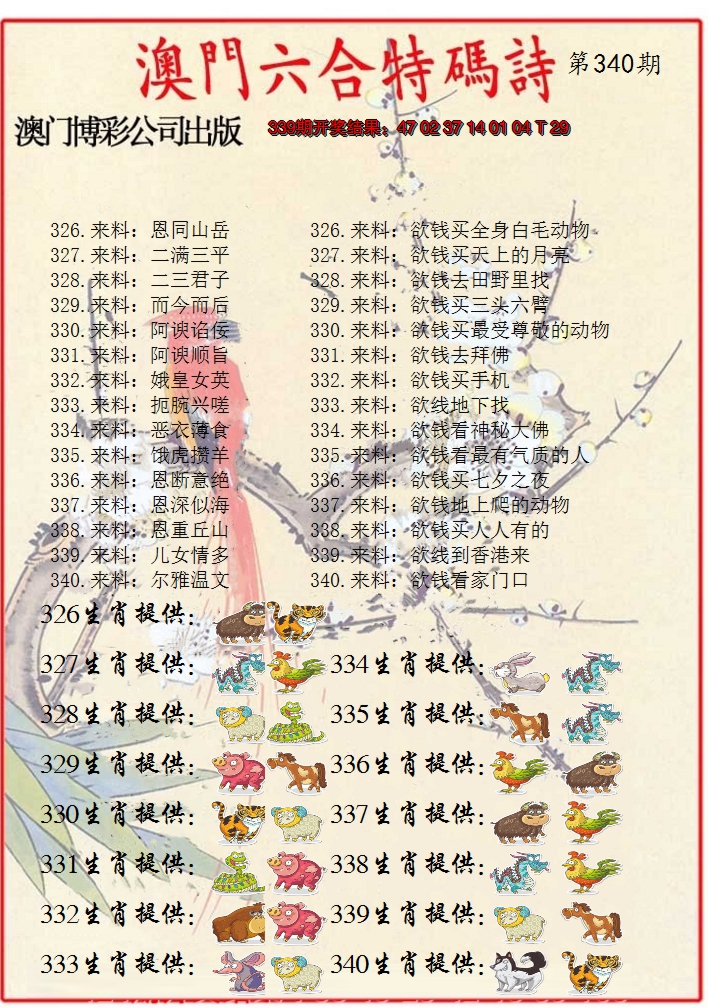 澳門六合特碼詩 第340期
澳门博彩公司出版 339期开奖结果：47 02 37 14 01 04 T 29
326.来料：恩同山岳 326.来料：欲钱买全身白毛动物
327.来料：二满三平 327.来料：欲钱买天上的月亮
328.来料：二三君子 328.来料：欲钱去田野里找
329.来料：而今而后 329.来料：欲钱买三头六臂
330.来料：阿谀谄佞 330.来料：欲钱买最受尊敬的动物
331.来料：阿谀顺旨 331.来料：欲钱去拜佛
332.来料：娥皇女英 332.来料：欲钱买手机
333.来料：扼腕兴嗟 333.来料：欲线地下找
334.来料：恶衣薄食 334.来料：欲钱看神秘大佛
335.来料：饿虎攒羊 335.来料：欲钱看最有气质的人
336.来料：恩断意绝 336.来料：欲钱买七夕之夜
337.来料：恩深似海 337.来料：欲钱地上爬的动物
338.来料：恩重丘山 338.来料：欲钱买人人有的
339.来料：儿女情多 339.来料：欲线到香港来
340.来料：尔雅温文 340.来料：欲钱看家门口
326生肖提供：
327生肖提供： 334生肖提供：
328生肖提供： 335生肖提供：
329生肖提供： 336生肖提供：
330生肖提供： 337生肖提供：
331生肖提供： 338生肖提供：
332生肖提供： 339生肖提供：
333生肖提供： 340生肖提供：